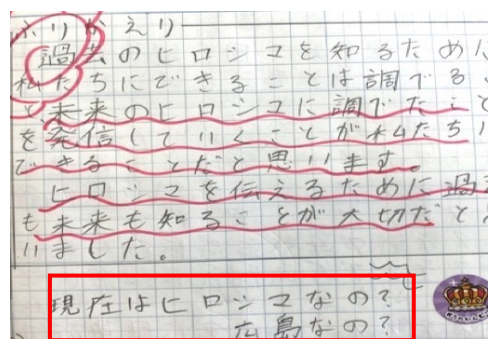 ふりかえり
過去のヒロシマを知るために
私たちにできることは調べる
と未来のヒロシマに調べたこと
を発信していくことが私たち
できることだと思います。
ヒロシマを伝えるために過
も未来も知ることが大切だと
いました。
現在はヒロシマなの?
広島なの?